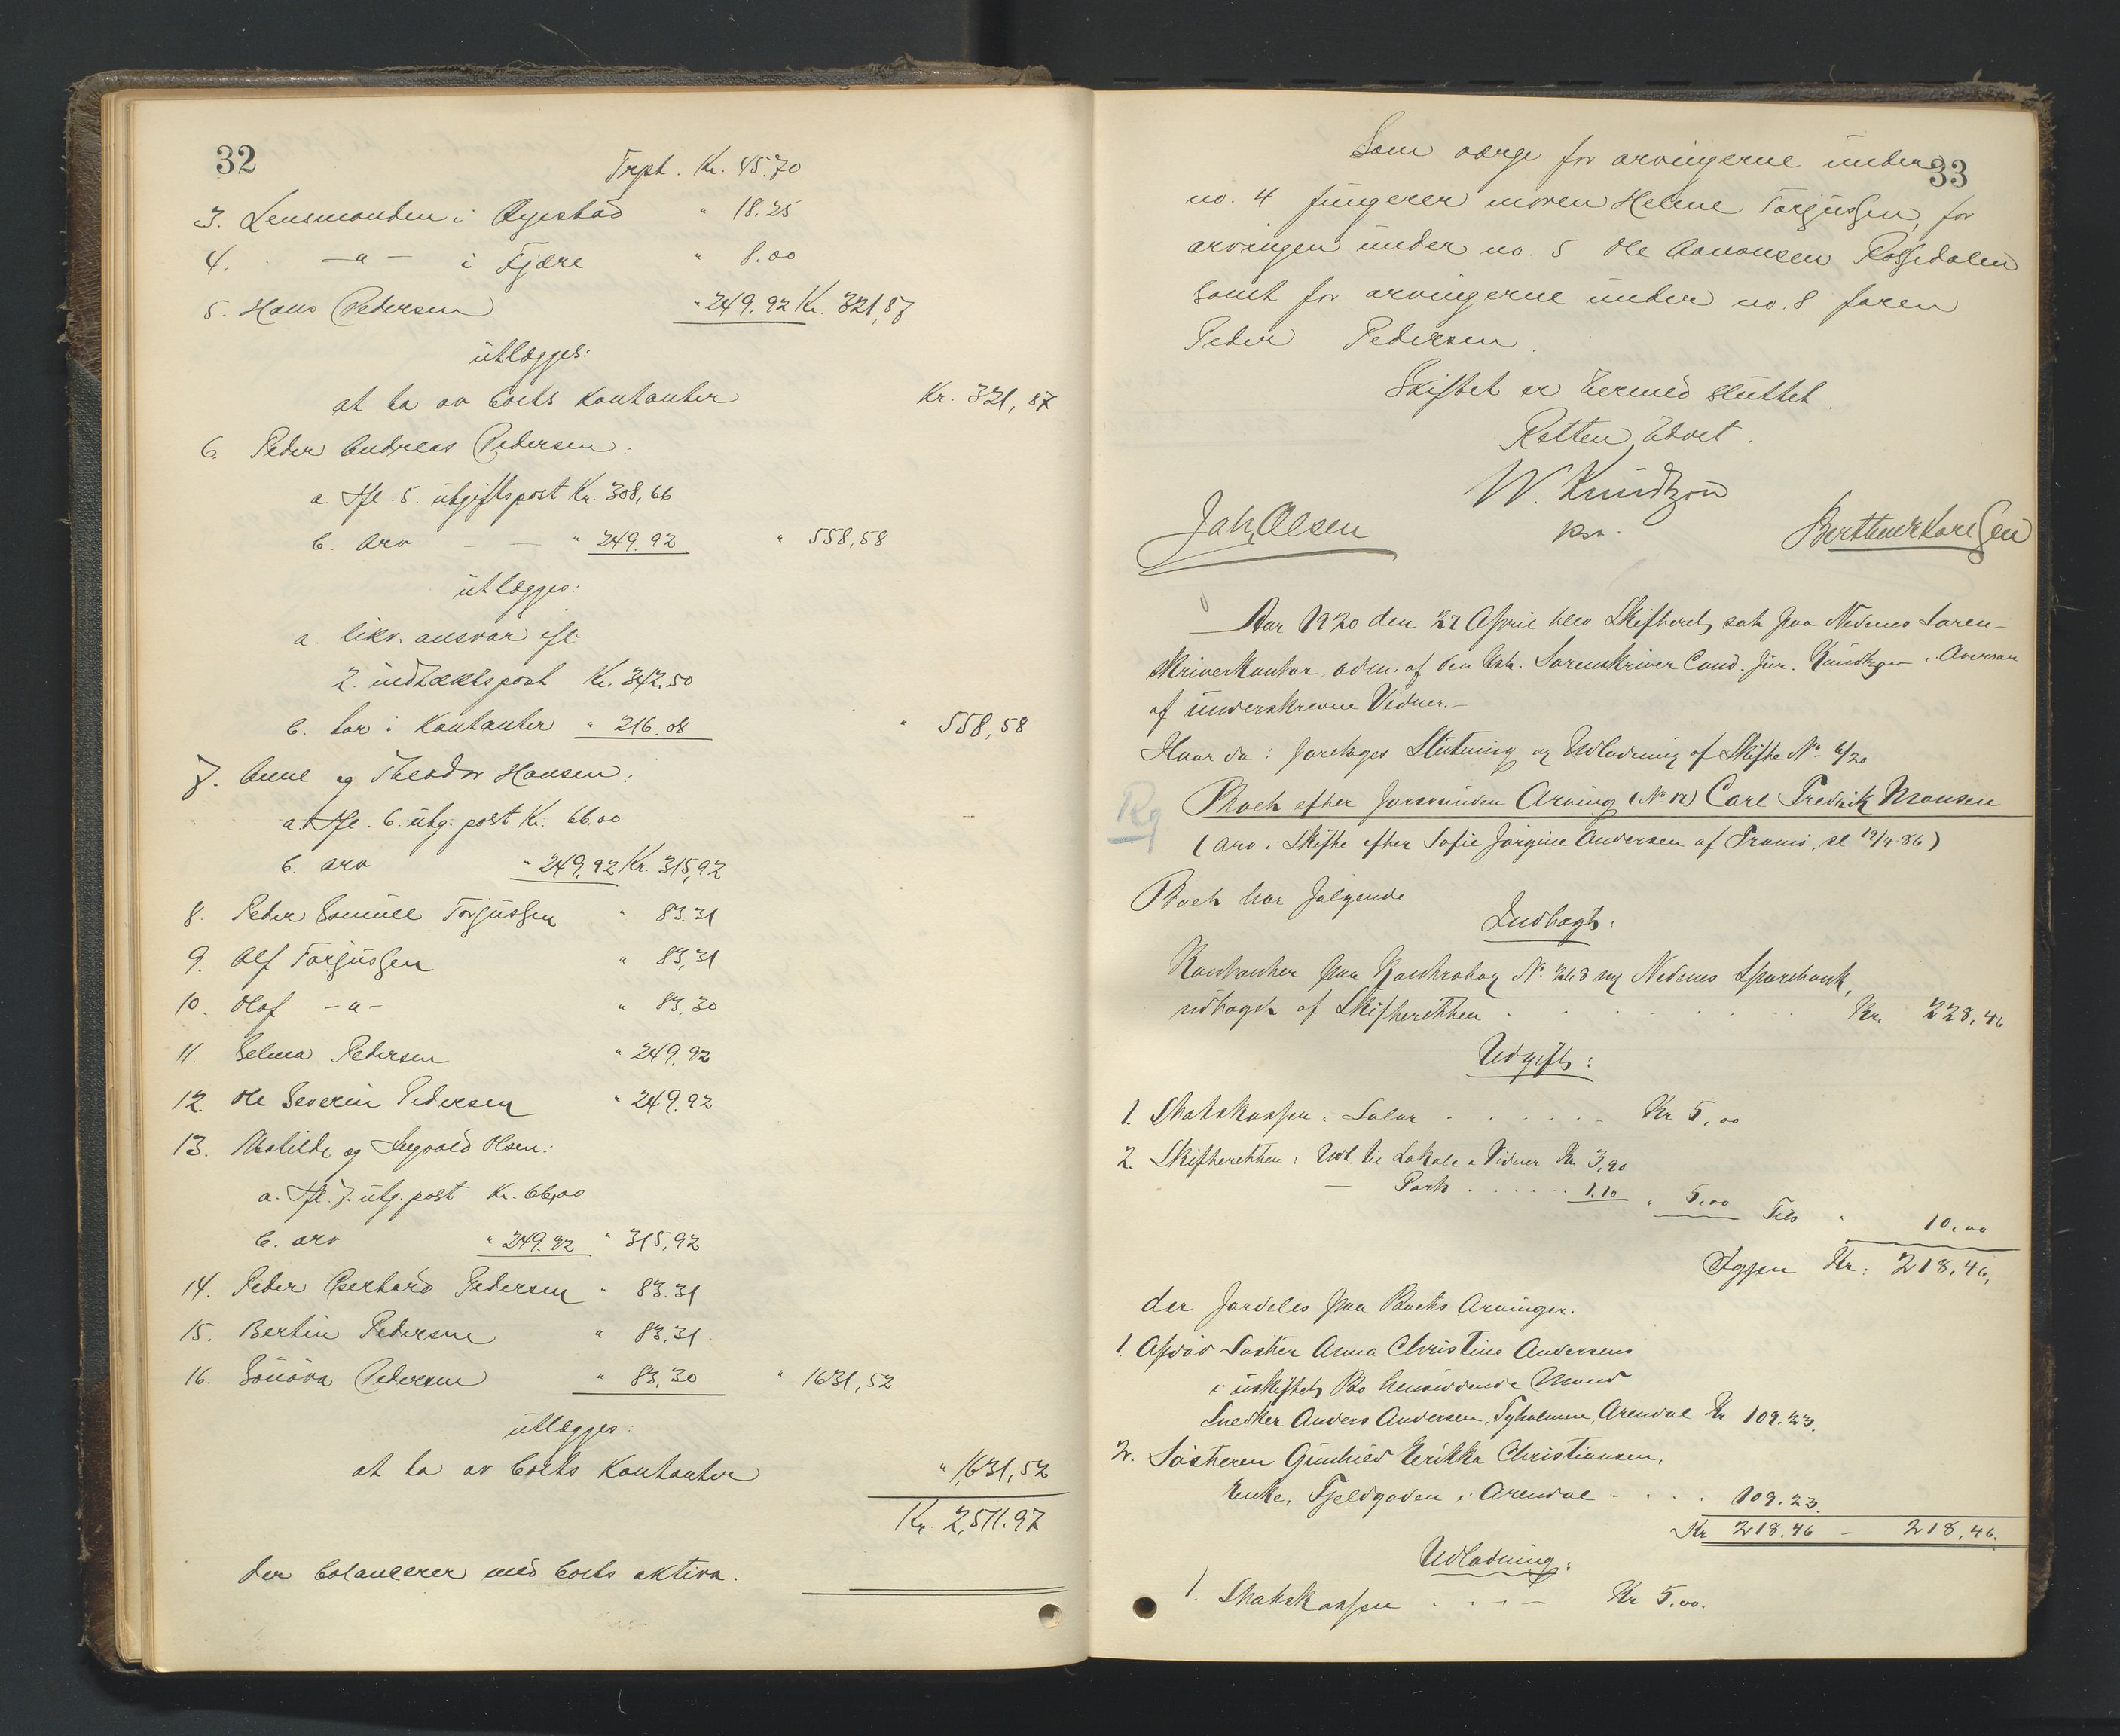 32
Trpt. Kr. 45.70
3. Lensmanden i Øyestad " 18.25
4. — " — i Fjære " 8.00
5. Hans Pedersen " 249.92 Kr. 321,87
utlægges:
at ta av boets kontanter Kr. 321,87
6. Peder Andreas Pedersen:
a. Ifl. 5. utgiftspost Kr. 308,66
b. Arv — — " 249.92 " 558,58
utlægges:
a. likv. ansvar ifl.
2. indtæktspost Kr. 342.50
b. tar i kontanter " 216.08 " 558,58
7. Anne og Theodor Hansen:
a. Ifl. 6. utg. post Kr. 66.00
b. arv " 249.92 Kr. 315,92
8. Peder Samuel Torjussen " 83.31
9. Alf Torjussen " 83,31
10. Olaf — " — " 83,30
11. Selma Pedersen " 249.92
12. Ole Severin Pedersen " 249.92
13. Matilde og Ingvald Olsen:
a. Ifl. 7. utg. post Kr. 66,00
b. arv " 249.92 " 315,92
14. Peder Gerhard Pedersen " 83.31
15. Bertin Pedersen " 83.31
16. Pedersen " 83,30 " 1631,52
utlægges:
at ta av boets kontanter " 1,631,52
Kr. 2,511.97
der balancerer med boets aktiva.
33
Som værge for arvingerne under
no. 4 fungerer moren Helene Torjussen, for
arvingen under no. 5 Ole Aanonsen Rossedalen
samt for arvingerne under no. 8 faren
Peder Pedersen.
Skiftet er hermed sluttet.
Retten hævet.
W. Knudtzon
Joh. Olsen kst.
Aar 1920 den 27 April blev Skifteret sat paa Nedenes Soren-
skriverkontor, adm. af den kst. Sorenskriver Cand. jur. Knudtzon i Overvær
af underskrevne Vidner.-
Hvor da: foretoges Slutning og Udlodning af Skifte No 6/20
Rg
Boet efter forsvunden Arving (No 12) Carl Fredrik Monsen
(Arv i Skifte efter Sofie Jørgine Andersen af Tromø, sl 19/4 86)
Boet har følgende
Indtægt:
Kontanter paa Kontrabog No 268 ny Nedenes Sparebank,
udtaget af Skifteretten . . . . . . . Kr. 228,46
Udgift:
1. Statskassen: Salar . . . . . . Kr 5,00
2. Skifteretten: Udl. til Lokale & Vidner Kr 3,90
— Porto . . . . . 1.10 " 5.00 Tils " 10,00
Igjen Kr. 218,46,
der fordeles paa Boets Arvinger:
1. Afdød Søster Anna Christine Andersens
i uskiftet Bo hensiddende Mand
Snedker Anders Andersen, Tyholmen, Arendal Kr 109.23.
2. Søsteren Gunhild Erikka Christiansen,
Enke, Fjeldgaden i Arendal . . . . 109.23.
Kr 218.46 — 218,46.
Udlodning:
1. Statskassen . . . — Kr 5,00.